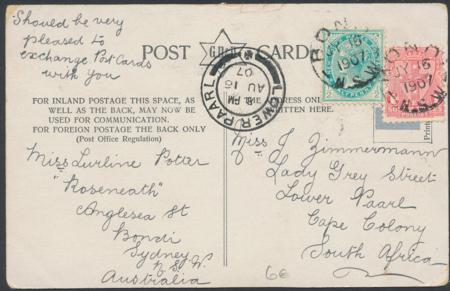 Should be very
pleased to
exchange Post Cards
with you
POST CARD
FOR INLAND POSTAGE THIS SPACE, AS
WELL AS THE BACK, MAY NOW BE
USED FOR COMMUNICATION.
FOR FOREIGN POSTAGE THE BACK ONLY
(Post Office Regulation)
Miss Lurline Potter
"Roseneath"
Anglesea St
Bondi
Sydney
N.S.W.
Australia
LOWER PAARL
8 PM
AU 16
07
BONDI
16
1907
N.S.W
BONDI
JY 16
1907
N.S.W
THE ADDRESS ONLY
WRITTEN HERE.
Printed
Miss J Zimmermann
Lady Grey Street
Lower Paarl
Cape Colony
South Africa
60